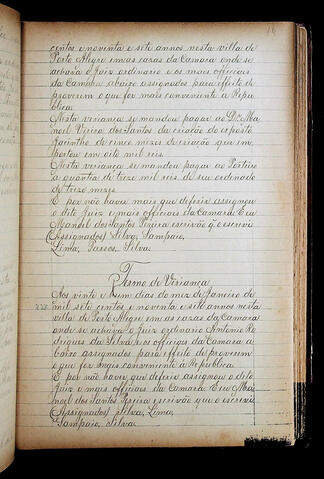 centos e noventa e sete annos nesta villa de
Porto Alegre em as cazas da Camara onde se
achava o Juiz ordinario e os mais officiaes
da Camara abaixo assignados para effeito de
proverem o que for mais conveniente a Repu
blica.
Nesta verianca se mandou pagar ao Dr. Ma
noel Vieira dos Santos da criacão do exposto
Jacintho de cinco mezes de criacão que im
portou em oito mil reis.
Nesta verianca se mandou pagar ao Porteiro
a quantia de treze mil reis de seu ordenado
de treze mezes.
E por não haver mais que deferir assignou
o dito Juiz e mais officiaes da Camara. E eu
Manoel dos Santos Pereira escrivão q o escrevi
(Assignados) Silva, Sampaio,
Lima, Passos, Silva.
Termo de Verianca
Aos vinte e hum dias do mez de Janeiro de
mil sete centos e noventa e sete annos nesta
villa de Porto Alegre em as cazas da Camara
onde se achava o Juiz ordinario Antonio Ro
drigues da Silva e os officiaes da Camara a
baixo assignados para effeito de proverem
o que for mais conveniente á Republica.
E por não haver que deferir assignou o dito
Juiz e mais officiaes da Camara. E eu Ma
noel dos Santos Pereira escrivão que o escrevi
(Assignados) Silva, Lima,
Sampaio, Silva.